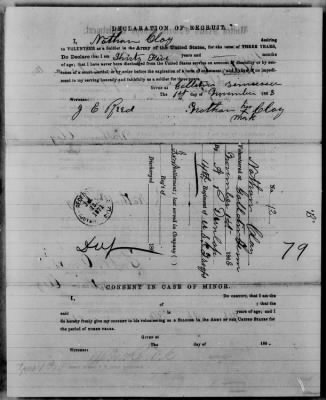 DECLARATION OF RECRUIT.
I, Nathan Cloy desiring
to VOLUNTEER as a Soldier in the Army of the United States, for the term of THREE YEARS,
Do Declare that I am Thirty Five years and months
of age; that I have never been discharged from the United States service on account of disability or by sentence
of a court-martial, or by order before the expiration of a term of enlistment; and I know of no impediment
to my serving honestly and faithfully as a soldier for three years.
GIVEN at Gallatin Tennessee
The 1st day of November 1863
WITNESS:
J E Reed Nathan his X Cloy
mark
No. 12
Nathan Cloy
Gallatin Tenn
November 1st 1863
By A S Dunlap
14th Regiment of U.S.C. Troops
enlistment; last served in Company ( )
Reg't of
Discharged 186
79
CONSENT IN CASE OF MINOR.
I, Do CERTIFY, that I am the
of ; that the
said is years of age; and I
do hereby freely give my consent to his volunteering as a SOLDIER in the ARMY OF THE UNITED STATES for
the period of THREE YEARS.
GIVEN at
The day of 186
WITNESS: